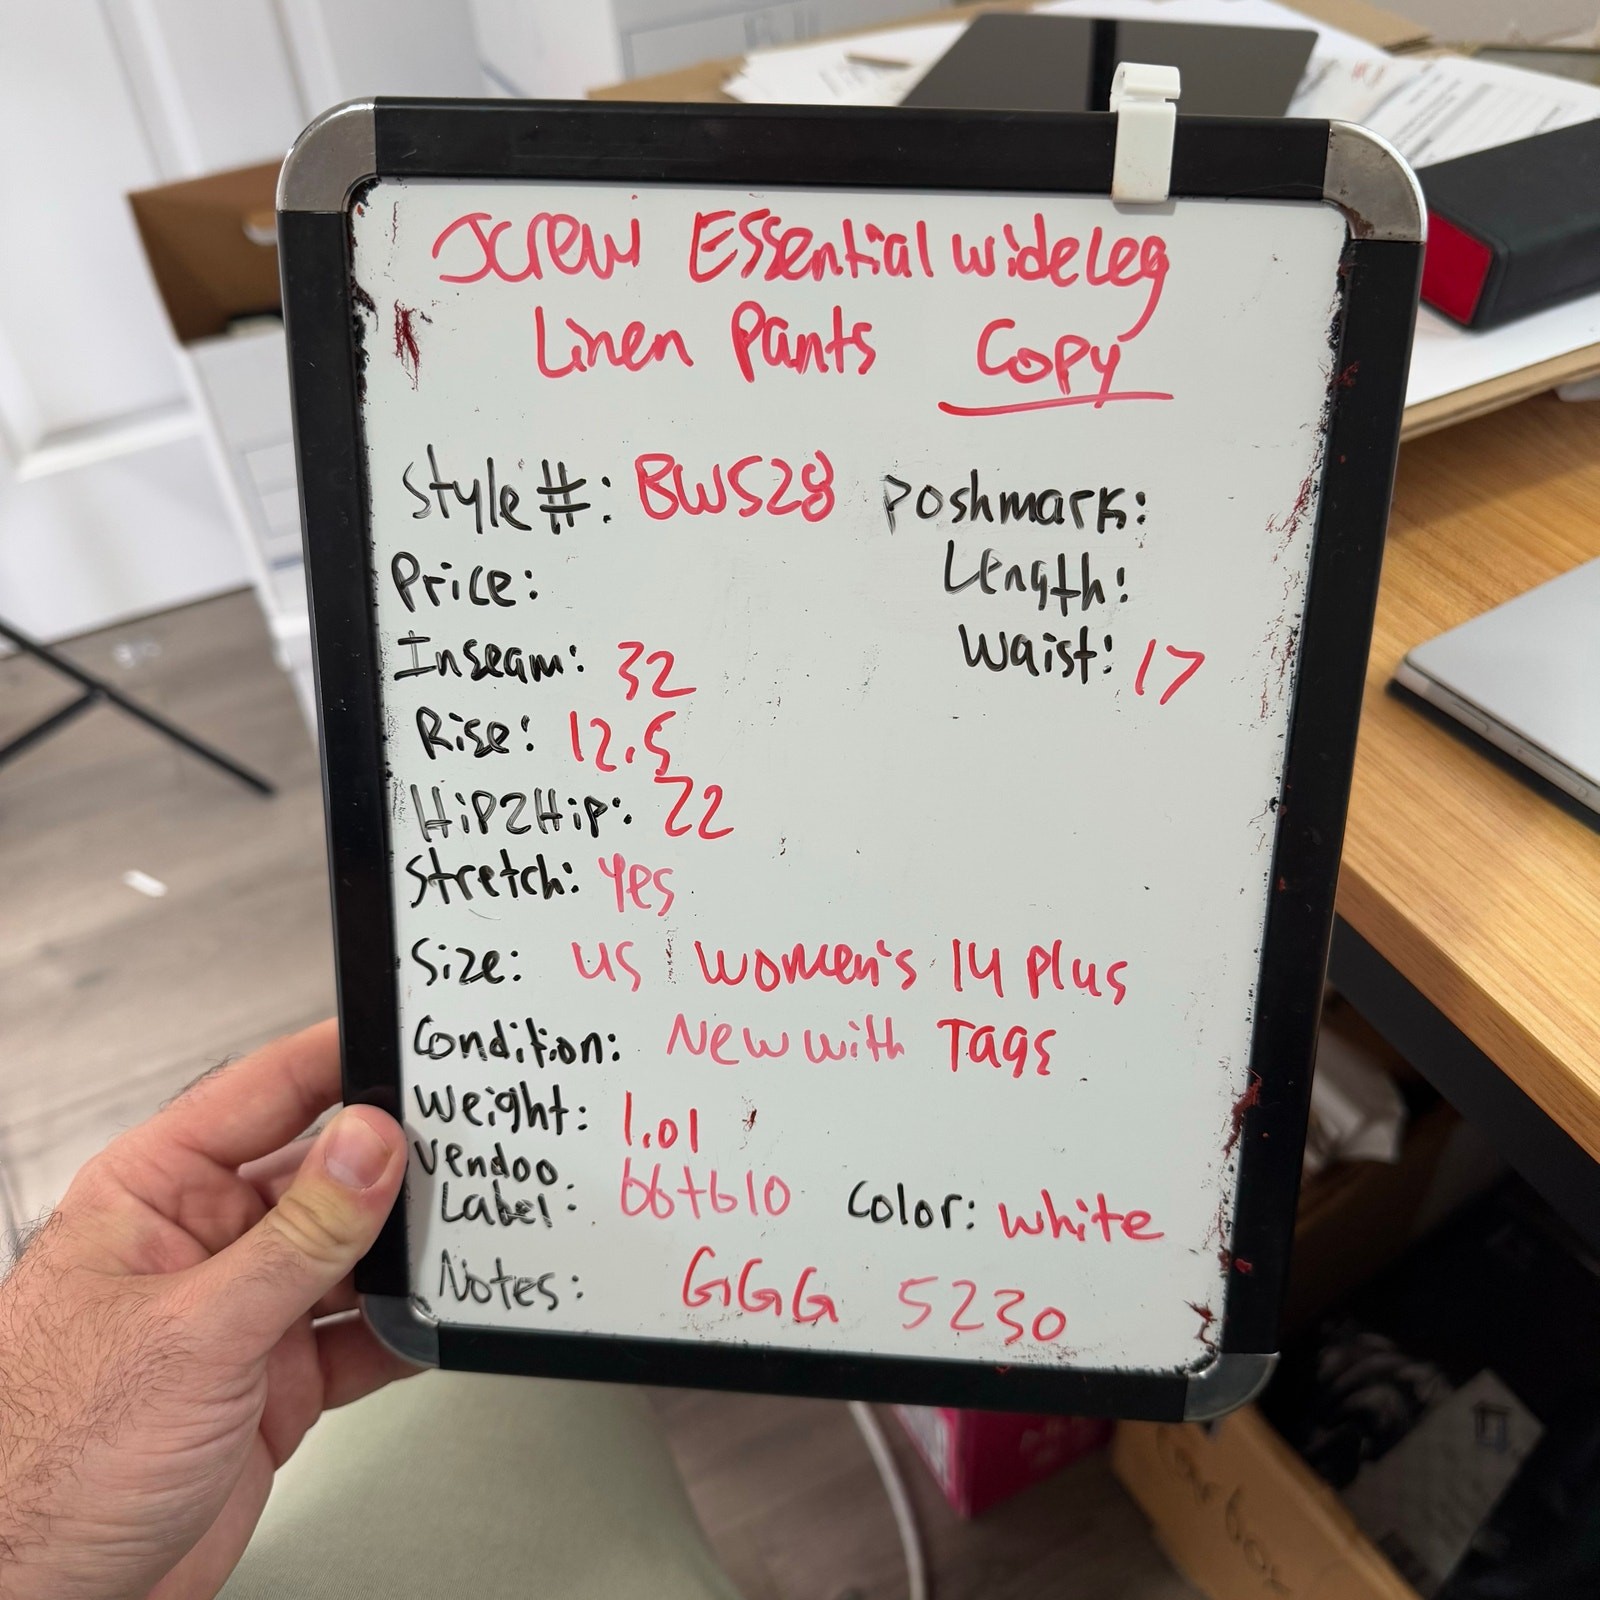 Jcrew Essential wide Leg
Linen Pants Copy
Style #: BW528 Poshmark:
Price: Length:
Inseam: 32 Waist: 17
Rise: 12.5
Hip2Hip: 22
Stretch: Yes
Size: US Women's 14 Plus
Condition: New with Tags
Weight: 1.01
Vendoo
Label: bb+b10 Color: White
Notes: GGG 5230